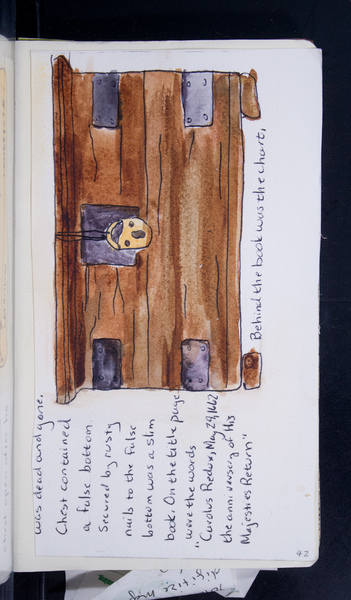 was dead and gone.
Chest contained
a false bottom
Secured by rusty
nails to the false
bottom was a slim
book. On the title page
were the words
"Carolus Redux, May 29, 1662
the anniversary of His
Majesties Return"
Behind the book was the chart,
42